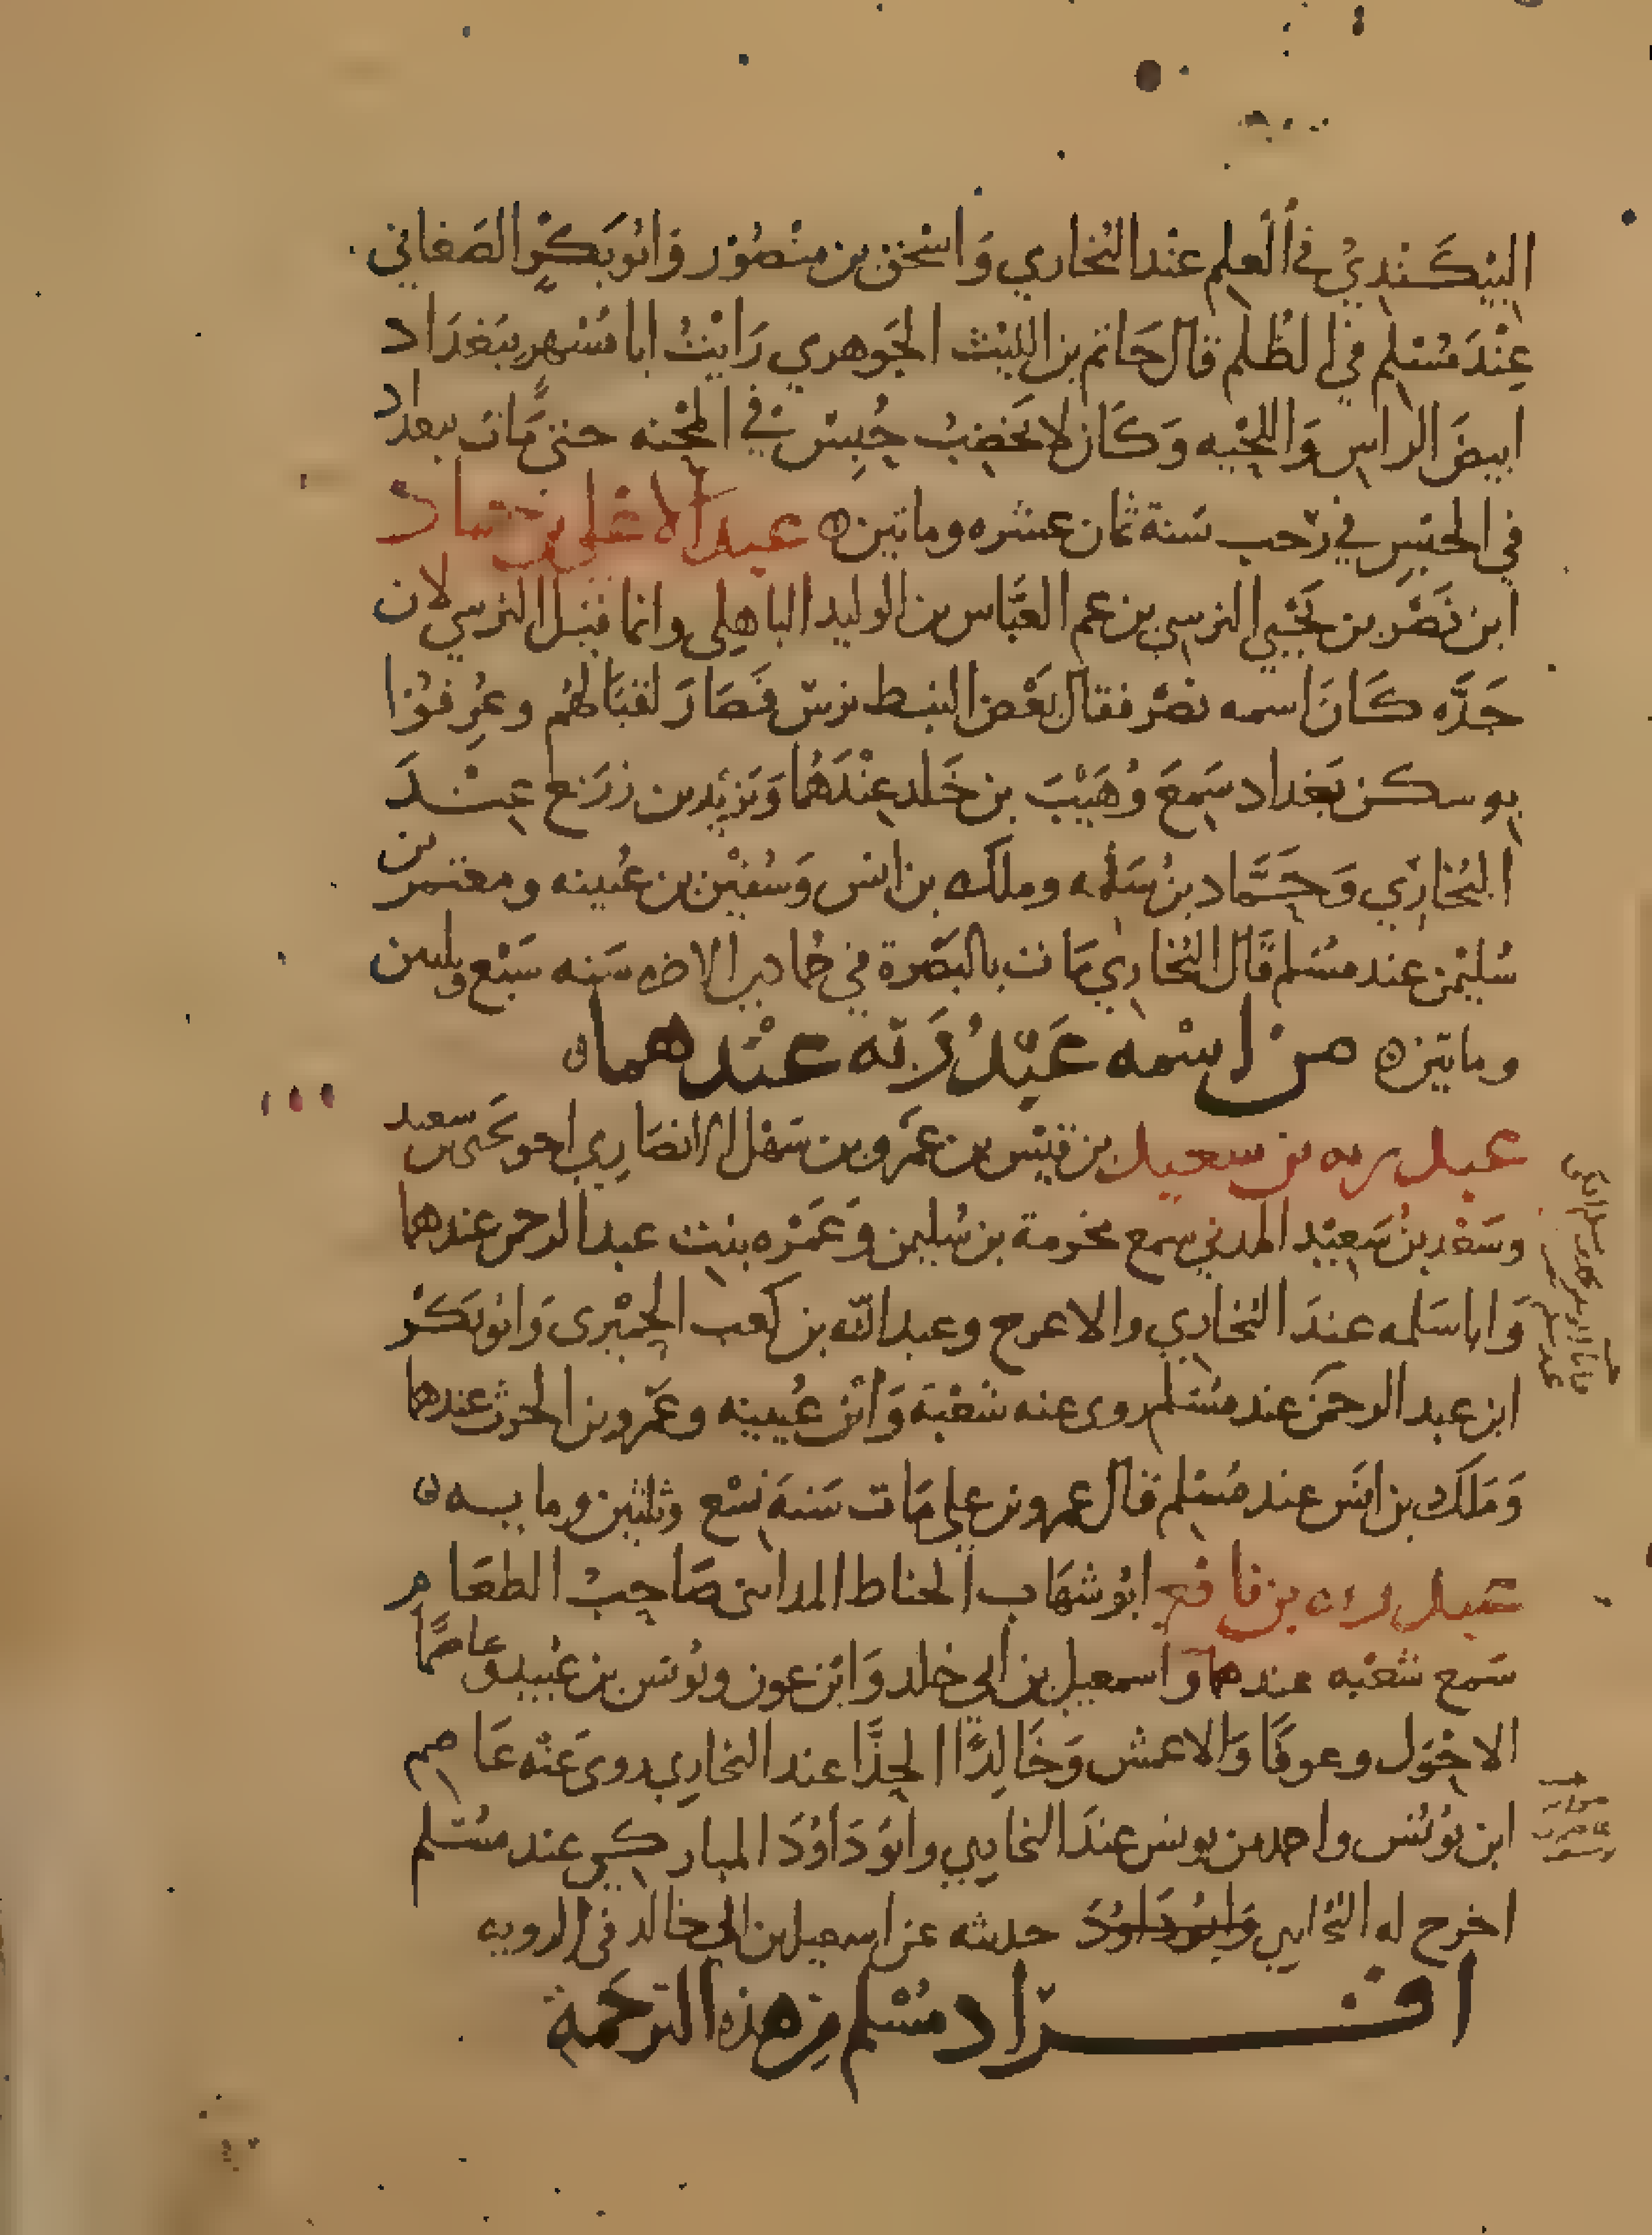 البِيْكَنْدِيُّ في العلم عنْد البُخاري وَاسْحٰق بن منْصُوْر وَابُو بَكْرٍ الصَغاني
عِنْدَ مُسْلم في الظُلم قال حَاتم بن الليْث الجَوهري رَايْتُ ابا مُسْهِرٍ ببَغدَاد
ابيضَ الراس وَاللحْيه وَكَان لا يخضِبُ حُبِسَ في المحْنه حتى مَات ببغداد
في الحبْسِ في رَجب سَنة ثمان عشره وماتين عبد الاعْلى بن حماد
ابن نَصْر بن يَحْيَى النرسي بن عم العبَّاس بن الوليد الباهِلي وانما قيل النرسي لان
جَدَّه كَانَ اسمه نصْر فقال بَعْض النبط نرسْ فَصَارَ لقبَا لهُم وعُرِفُوْا
به وسكن بَغداد سَمِعَ وُهَيْبَ بن خَلد عِنْدَهُما وَيَزيْد بن زرَيع عِنْدَ
البُخَارِي وَحَمَّاد بنُ سَلَمه وملك بن انس وَسُفيْن بن عُيينه ومعتمر بن
سُليْمٰن عند مسْلم قَال البُخارِي مَات بالبَصْرة في جُمادى الاخره سَنه سَبْع وثلثين
وماتين من اسْمه عَبْدُ رَبّه عنْدهما
عبد ربه بن سعيد بن قيْس بن عَمْرو بن سَهْل الانصَارِي اخو يحيى بن سعيد
وسَعْد بنُ سَعِيْد المدني سمع مخرمة بن سُليمن وَعَمْرَه بنت عبد الرحمن عندهما
وَابا سَلمه عندَ البُخارِي والاعرج وعبد الله بن كعب الحِمْيَرى وَابو بَكْر
ابن عبد الرحمَن عند مسْلم روى عنه شعْبَة وَابْن عُيينه وعَمْرو بن الحرث عندهما
وَمَلك بن انَس عند مُسْلم قال عمرو بن علي مَات سَنة تسْع وثلثين ومايه
عبد ربه بن نافع ابُو شهَاب الحناط المداينى صَاحِبُ الطعَام
سَمع شعْبه عندهما وَاسمعيل بن ابي خلد وَابْن عون ويُونس بن عُبيد وعاصمًا
الاحْوَل وعوفًا وَالاعمش وَخَالِدًا الحذَّا عند البخارِي روى عَنْه عَاصم
ابن يُوسُف واحمد بن يونس عندَ البخاري وابُو دَاوُدَ المباركي عند مسْلم
اخرج له البُخاري وَابُو دَاوُدَ حديثه عن اسمعيل بن ابي خالد في الرويه
افراد مسْلم من هذه الترجَمة